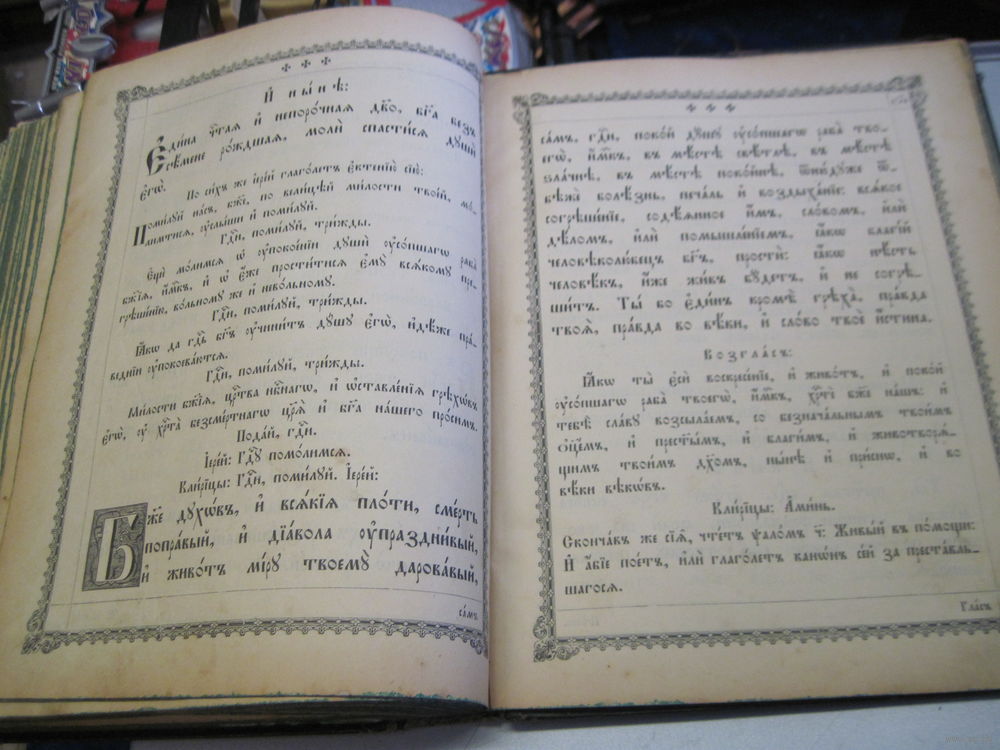 И҆ ны́нѣ:
Є҆ди́на чⷭ҇таѧ и҆ непоро́чнаѧ дв҃о, бг҃а без̾
сѣ́мене ро́ждшаѧ, молѝ спасти́сѧ дꙋшѝ
є҆гѡ̀.
По си́хъ же і҆ере́й глаго́летъ є҆ктенїю̀ сїю̀:
Поми́лꙋй на́съ, бж҃е, по вели́цѣй ми́лости твое́й, мо-
лимтисѧ, ᲂу҆слы́ши и҆ поми́лꙋй.
Гдⷭ҇и, поми́лꙋй, три́жды.
Є҆щѐ мо́лимсѧ ѡ҆ ᲂу҆покое́нїи дꙋшѝ ᲂу҆со́пшагѡ раба̀
бж҃їѧ, и҆́мⷬ҇къ, и҆ ѡ҆ є҆́же прости́тисѧ є҆мꙋ̀ всѧ́комꙋ пре-
грѣше́нїю, во́льномꙋ же и҆ нево́льномꙋ.
Гдⷭ҇и, поми́лꙋй, три́жды.
Ꙗ҆́кѡ да гдⷭ҇ь бг҃ъ ᲂу҆чини́тъ дꙋ́шꙋ є҆гѡ̀, и҆дѣ́же пра́-
веднїи ᲂу҆покоева́ютсѧ.
Гдⷭ҇и, поми́лꙋй, три́жды.
Ми́лости бж҃їѧ, црⷭ҇тва нбⷭ҇нагѡ, и҆ ѡ҆ставле́нїѧ грѣхѡ́въ
є҆гѡ̀, ᲂу҆ хрⷭ҇та̀ безсме́ртнагѡ цр҃ѧ̀ и҆ бг҃а на́шегѡ про́симъ.
Пода́й, гдⷭ҇и.
І҆ере́й: Гдⷭ҇ꙋ помо́лимсѧ.
Кли́рицы: Гдⷭ҇и, поми́лꙋй. І҆ере́й:
Бж҃е дꙋхѡ́въ, и҆ всѧ́кїѧ пло́ти, сме́рть
попра́вый, и҆ дїа́вола ᲂу҆праздни́вый,
и҆ живо́тъ мі́рꙋ твоемꙋ̀ дарова́вый,
са́мъ
са́мъ, гдⷭ҇и, поко́й дꙋ́шꙋ ᲂу҆со́пшагѡ раба̀ тво-
егѡ̀, и҆́мⷬ҇къ, въ мѣ́стѣ свѣ́тлѣ, въ мѣ́стѣ
ѕла́чнѣ, въ мѣ́стѣ поко́йнѣ, ѿню́дꙋже ѿ-
бѣжѐ болѣ́знь, печа́ль и҆ воздыха́нїе: всѧ́кое
согрѣше́нїе, содѣ́ѧнное и҆́мъ, сло́вомъ, и҆лѝ
дѣ́ломъ, и҆лѝ помышле́нїемъ, ꙗ҆́кѡ благі́й
человѣколю́бецъ бг҃ъ, простѝ: ꙗ҆́кѡ нѣ́сть
человѣ́къ, и҆́же жи́въ бꙋ́детъ, и҆ не согрѣ-
ши́тъ. Ты́ бо є҆ди́нъ кромѣ̀ грѣха̀, пра́вда
твоѧ̀, пра́вда во вѣ́ки, и҆ сло́во твоѐ и҆́стина.
Возгла́съ:
Ꙗ҆́кѡ ты̀ є҆сѝ воскресе́нїе, и҆ живо́тъ, и҆ поко́й
ᲂу҆со́пшагѡ раба̀ твоегѡ̀, и҆́мⷬ҇къ, хрⷭ҇тѐ бж҃е на́шъ: и҆
тебѣ̀ сла́вꙋ возсыла́емъ, со безнача́льнымъ твои́мъ
ѻ҆ц҃е́мъ, и҆ прест҃ы́мъ, и҆ благи́мъ, и҆ животворѧ́-
щимъ твои́мъ дх҃омъ, ны́нѣ и҆ при́снѡ, и҆ во
вѣ́ки вѣкѡ́въ.
Кли́рицы: А҆ми́нь.
Сконча́въ же сїѧ̑, чте́тъ ѱало́мъ ч҃: Живы́й въ по́мощи:
И҆ а҆́бїе пое́тъ, и҆лѝ глаго́летъ канѡ́нъ се́й за преста́вль-
шагосѧ.
Гла́съ